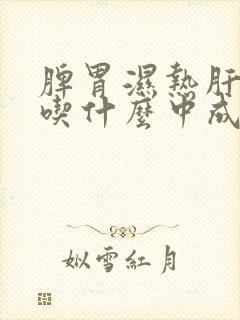 脾胃濕熱肝
喫什麼中成
姒雪紅月